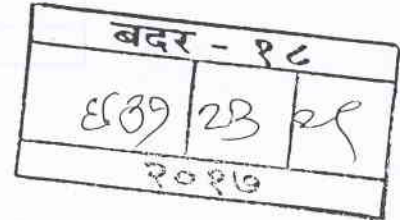 बदर - १८
२३ २९
२०१७